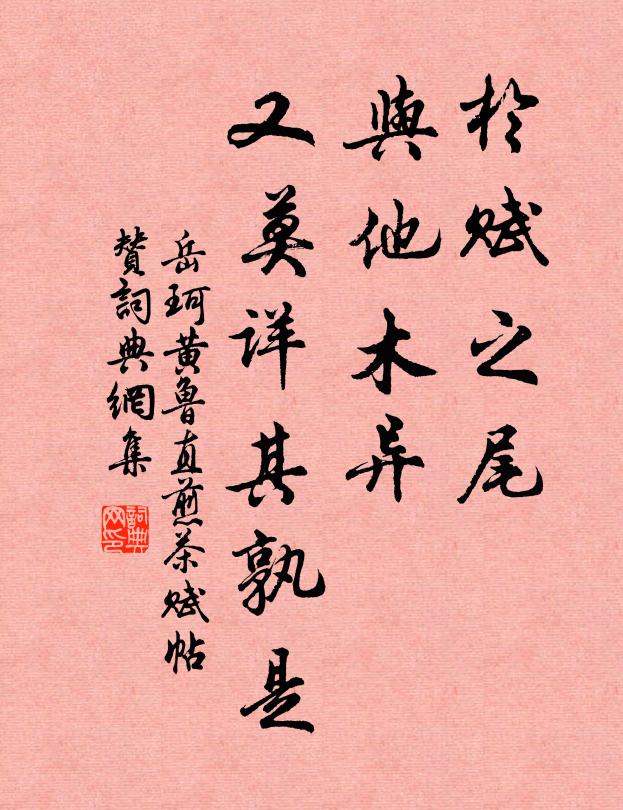 於赋之尾
與他木异
又莫详其孰是
岳珂黄魯直煎茶赋帖
贊詞典網集
詞典网印